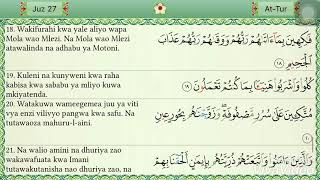 Juz 27
At-Tur
18. Wakifurahi kwa yale aliyo wapa
Mola wao Mlezi. Na Mola wao Mlezi
atawalinda na adhabu ya Motoni.
فَٰكِهِينَ بِمَآ ءَاتَىٰهُمْ رَبُّهُمْ وَوَقَىٰهُمْ رَبُّهُمْ عَذَابَ
ٱلْجَحِيمِ ١٨
19. Kuleni na kunyweni kwa raha
kabisa kwa sababu ya mliyo kuwa
mkiyatenda.
كُلُوا۟ وَٱشْرَبُوا۟ هَنِيٓـًٔۢا بِمَا كُنتُمْ تَعْمَلُونَ ١٩
20. Watakuwa wameegemea juu ya viti
vya enzi vilivyo pangwa kwa safu. Na
tutawaoza mahuru-l-aini.
مُتَّكِـِٔينَ عَلَىٰ سُرُرٍ مَّصْفُوفَةٍ ۖ وَزَوَّجْنَٰهُم بِحُورٍ عِينٍ
٢٠
21. Na walio amini na dhuriya zao
wakawafuata kwa Imani
tutawakutanisha nao dhuriya zao, na
وَٱلَّذِينَ ءَامَنُوا۟ وَٱتَّبَعَتْهُمْ ذُرِّيَّتُهُم بِإِيمَٰنٍ أَلْحَقْنَا بِهِمْ